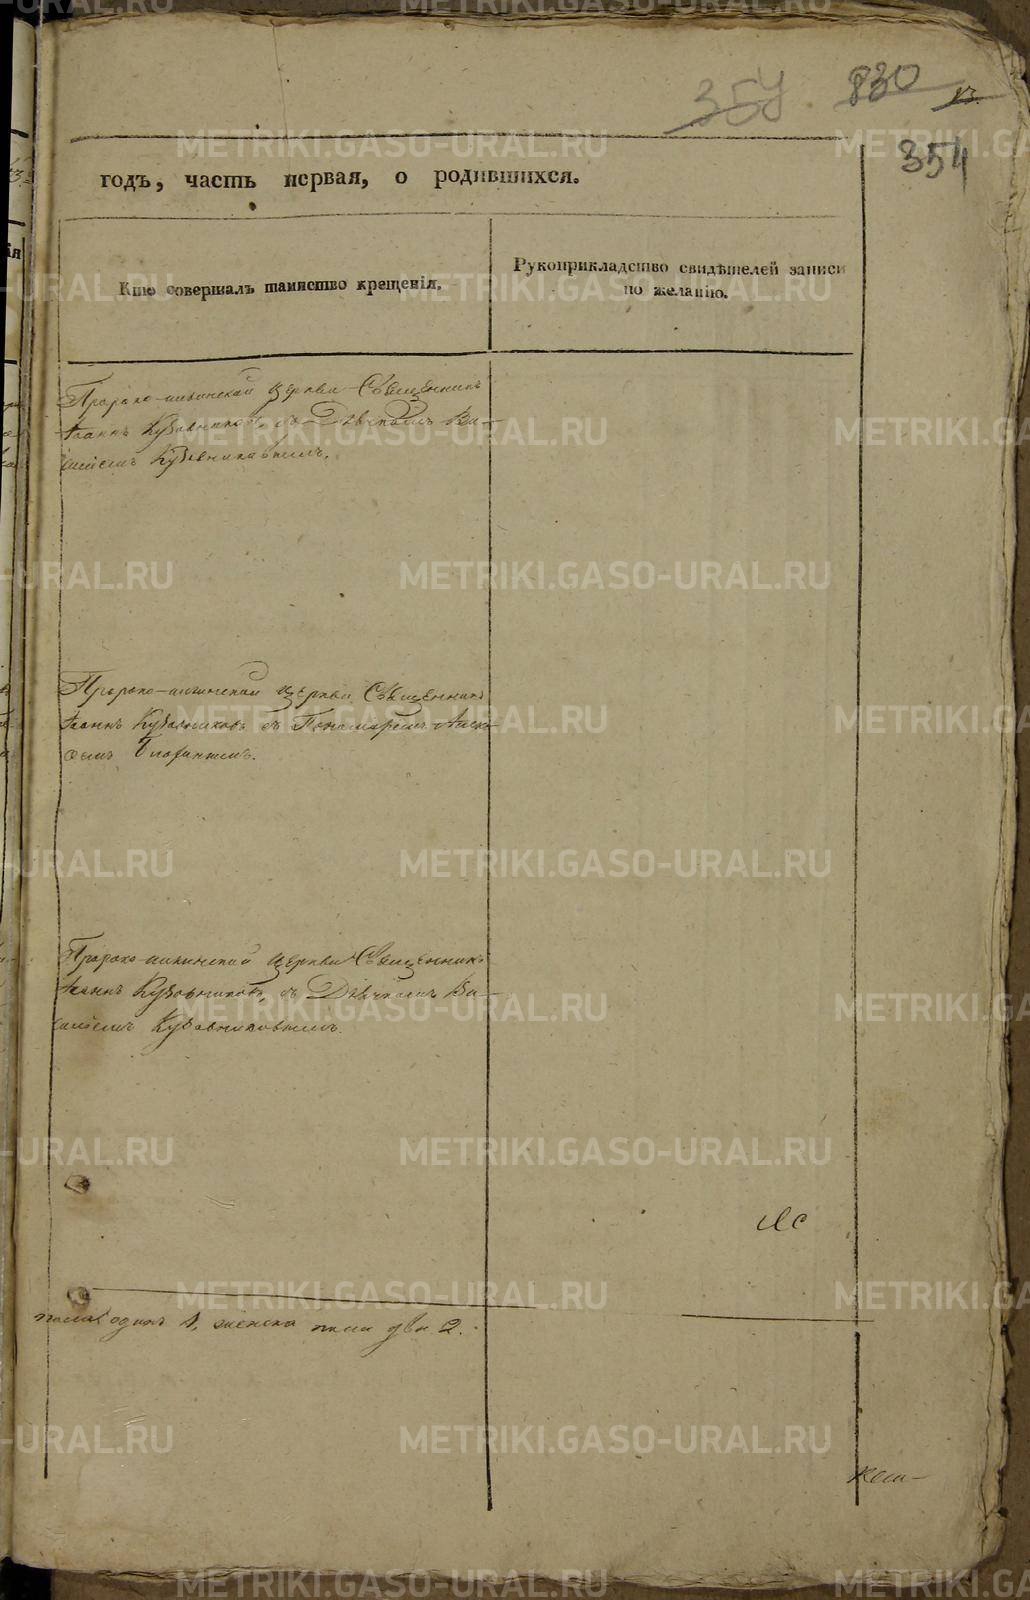 357 830 13.
354
годъ, часть первая, о родившихся.
Кто совершалъ таинство крещенія.
Рукоприкладство свидѣтелей записи
по желанію.
Пророко-ильинской церкви Священникъ
Іоаннъ Кузовниковъ, съ Дьячкомъ Ва-
силіемъ Кузовниковымъ.
Пророко-ильинской церкви Священникъ
Іоаннъ Кузовниковъ съ Пономаремъ Алек-
сѣемъ
Пророко-ильинской церкви Священникъ
Іоаннъ Кузовниковъ, съ Дьячкомъ Ва-
силіемъ Кузовниковымъ.
пола одинъ 1, женска пола две 2.
METRIKI.GASO-URAL.RU